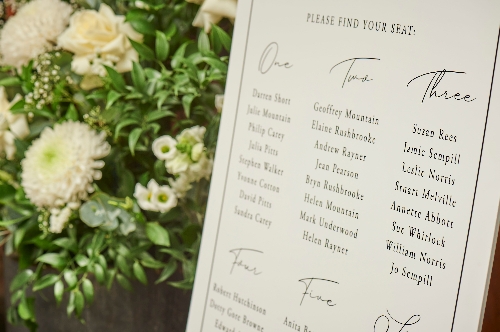 PLEASE FIND YOUR SEAT:
One
Darren Short
Julie Mountain
Philip Carey
Julia Pitts
Stephen Walker
Yvonne Cotton
David Pitts
Sandra Carey
Two
Geoffrey Mountain
Elaine Rushbrooke
Andrew Rayner
Jean Pearson
Bryn Rushbrooke
Helen Mountain
Mark Underwood
Helen Rayner
Three
Susan Rees
Jamie Sempill
Leslie Norris
Stuart Melville
Annette Abbott
Sue Whirlock
William Norris
Jo Sempill
Four
Robert Hutchinson
Dotty Gore Browne
Edward
Five
Anita